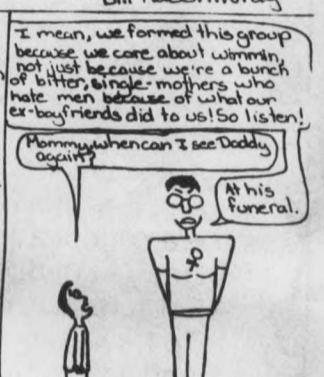 I mean, we formed this group
because we care about wimmin,
not just because we're a bunch
of bitter, single-mothers who
hate men because of what our
ex-boyfriends did to us! So listen!
Mommy, when can I see Daddy
again?
At his
funeral.